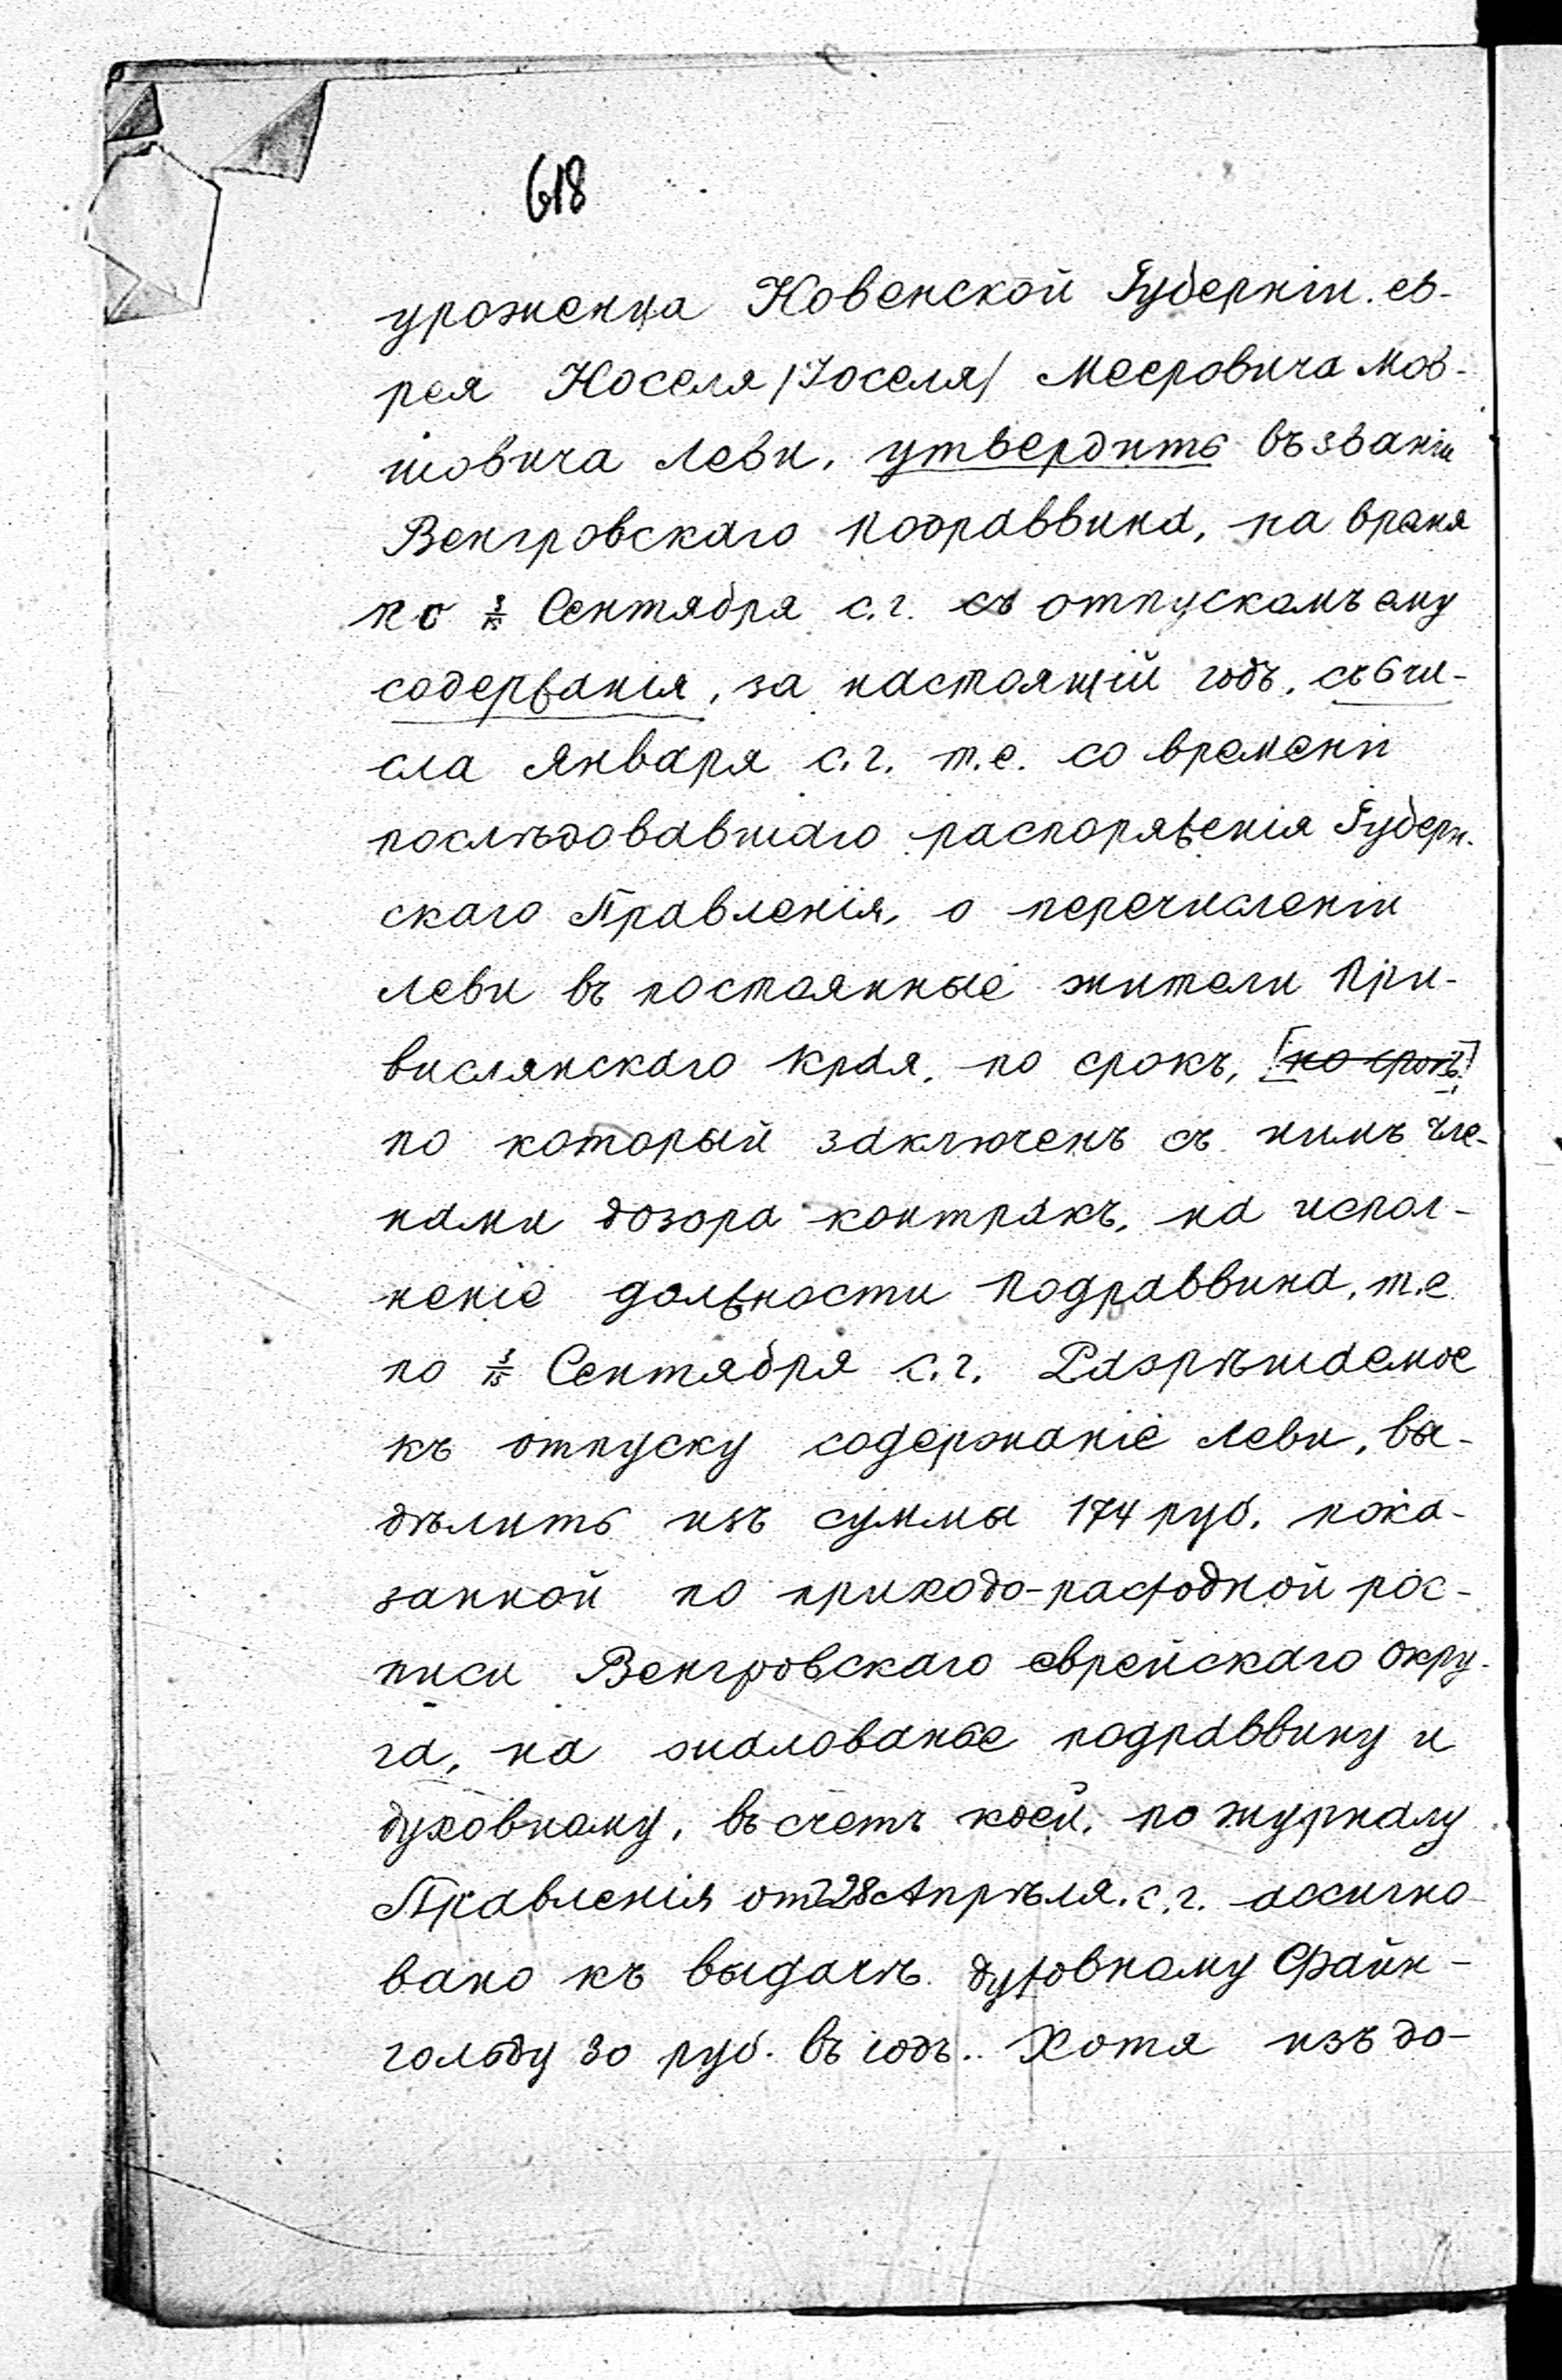 618
уроженца Ковенской Губерніи. ев-
рея Носеля /Іоселя/ Мееровича Мов-
шовича Леви, утвердить въ званіи
Венгровскаго подраввина, на время
по 3/15 Сентября с.г. съ отпускомъ ему
содержанія, за настоящій годъ, съ 6 чи-
сла Января с.г. т.е. со времени
послѣдовавшаго распоряженія Губерн-
скаго Правленія, о перечисленіи
Леви въ постоянные жители При-
вислянскаго края, по срокъ, [по срокъ]
по который заключенъ съ нимъ чле-
нами дозора контракъ, на испол-
неніе должности подраввина, т.е
по 3/15 Сентября с.г. Разрѣшаемое
къ отпуску содержаніе Леви, вы-
дѣлить изъ суммы 174 руб. пока-
занной по приходо-расходной рос-
писи Венгровскаго еврейскаго окру-
га, на жалованье подраввину и
духовному, въ счетъ коей, по журналу
Правленія отъ 28 Апрѣля с.г. ассигно-
вано къ выдачѣ духовному Файн-
гольду 30 руб. въ годъ.. Хотя изъ до-